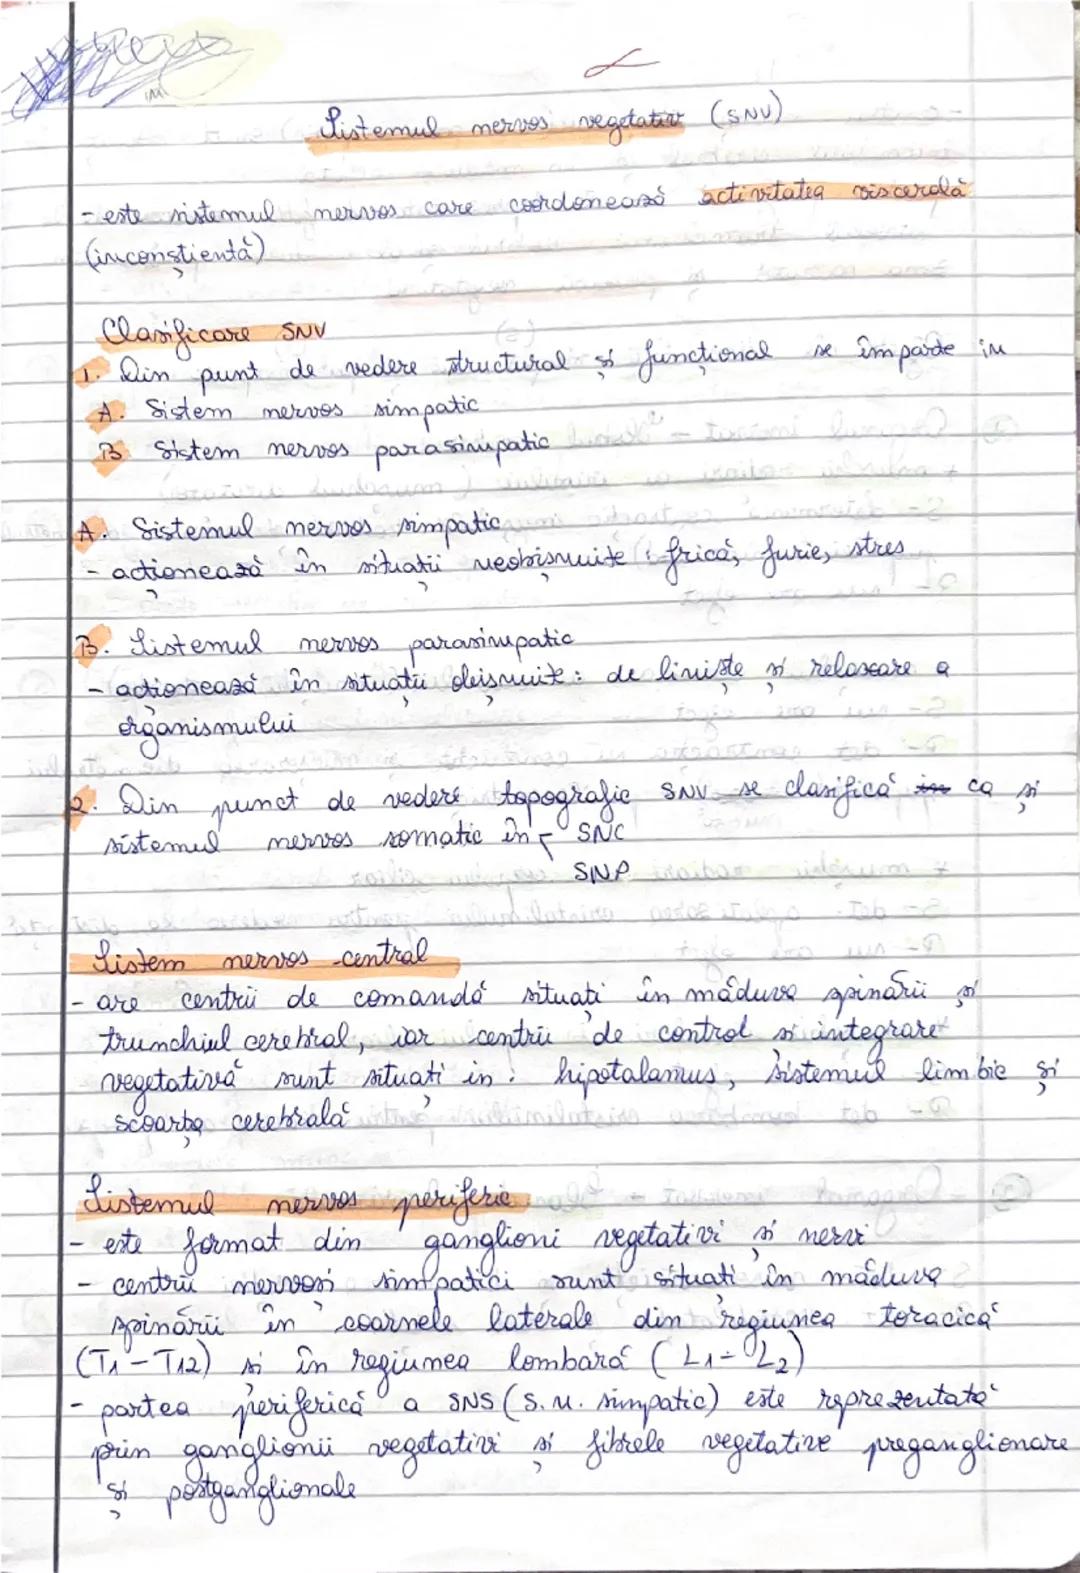 Sistemul nervos vegetativ (SNV)
- este sistemul nervos care coordonează activitatea viscerală
(inconștientă)
Clasificare SNV
1. Din punt de vedere structural și funcțional se împarde in
A. Sistem nervos simpatic
B Sistem nervos parasimpatic
A. Sistemul nervos simpatic
- acționează în situații neobișnuite : frică, furie, stres
B. Sistemul nervos parasimpatic
- acționează în situații obișnuite : de liniște și relaxare a
organismului
2. Din punct de vedere topografic SNV se clasifică ca și
sistemul nervos somatic în - SNC
SNP
Sistem nervos central
- are centrii de comandă situați în măduva spinării și
trunchiul cerebral, iar centrii de control și integrare
vegetativă sunt situați in : hipotalamus, sistemul limbic și
scoarța cerebrală
Sistemul nervos periferic
- este format din ganglioni vegetativi și nervi
- centrii nervoși simpatici sunt situați în măduva
spinării în coarnele laterale din regiunea toracică
(T1 - T12) și în regiunea lombară (L1 - L2)
- partea periferică a SNS (S. n. simpatic) este reprezentată
prin ganglionii vegetativi și fibrele vegetative preganglionare
și postganglionale